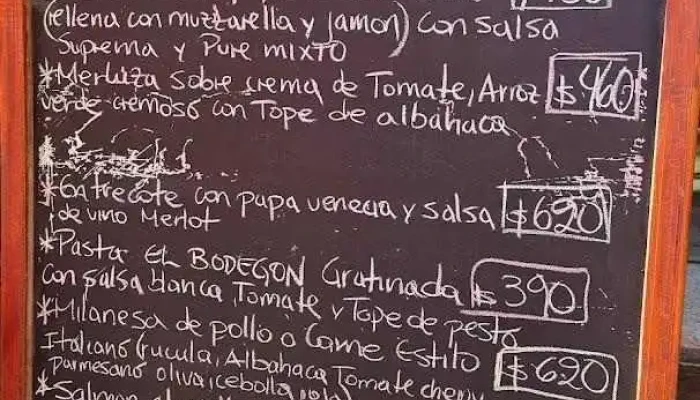 (rellena con muzzarella y jamon) con salsa
Suprema y Pure mixto
*Merluza sobre crema de Tomate, Arroz $460
verde cremoso con Tope de albahaca
*Entrecote con papa venecia y salsa $620
de vino Merlot
*Pasta EL BODEGON Gratinada $390
con salsa blanca, Tomate y Tope de pesto
*Milanesa de pollo o Carne Estilo $620
Italiano (rucula, Albahaca Tomate cherry
Parmesano oliva, cebolla
*Salmon